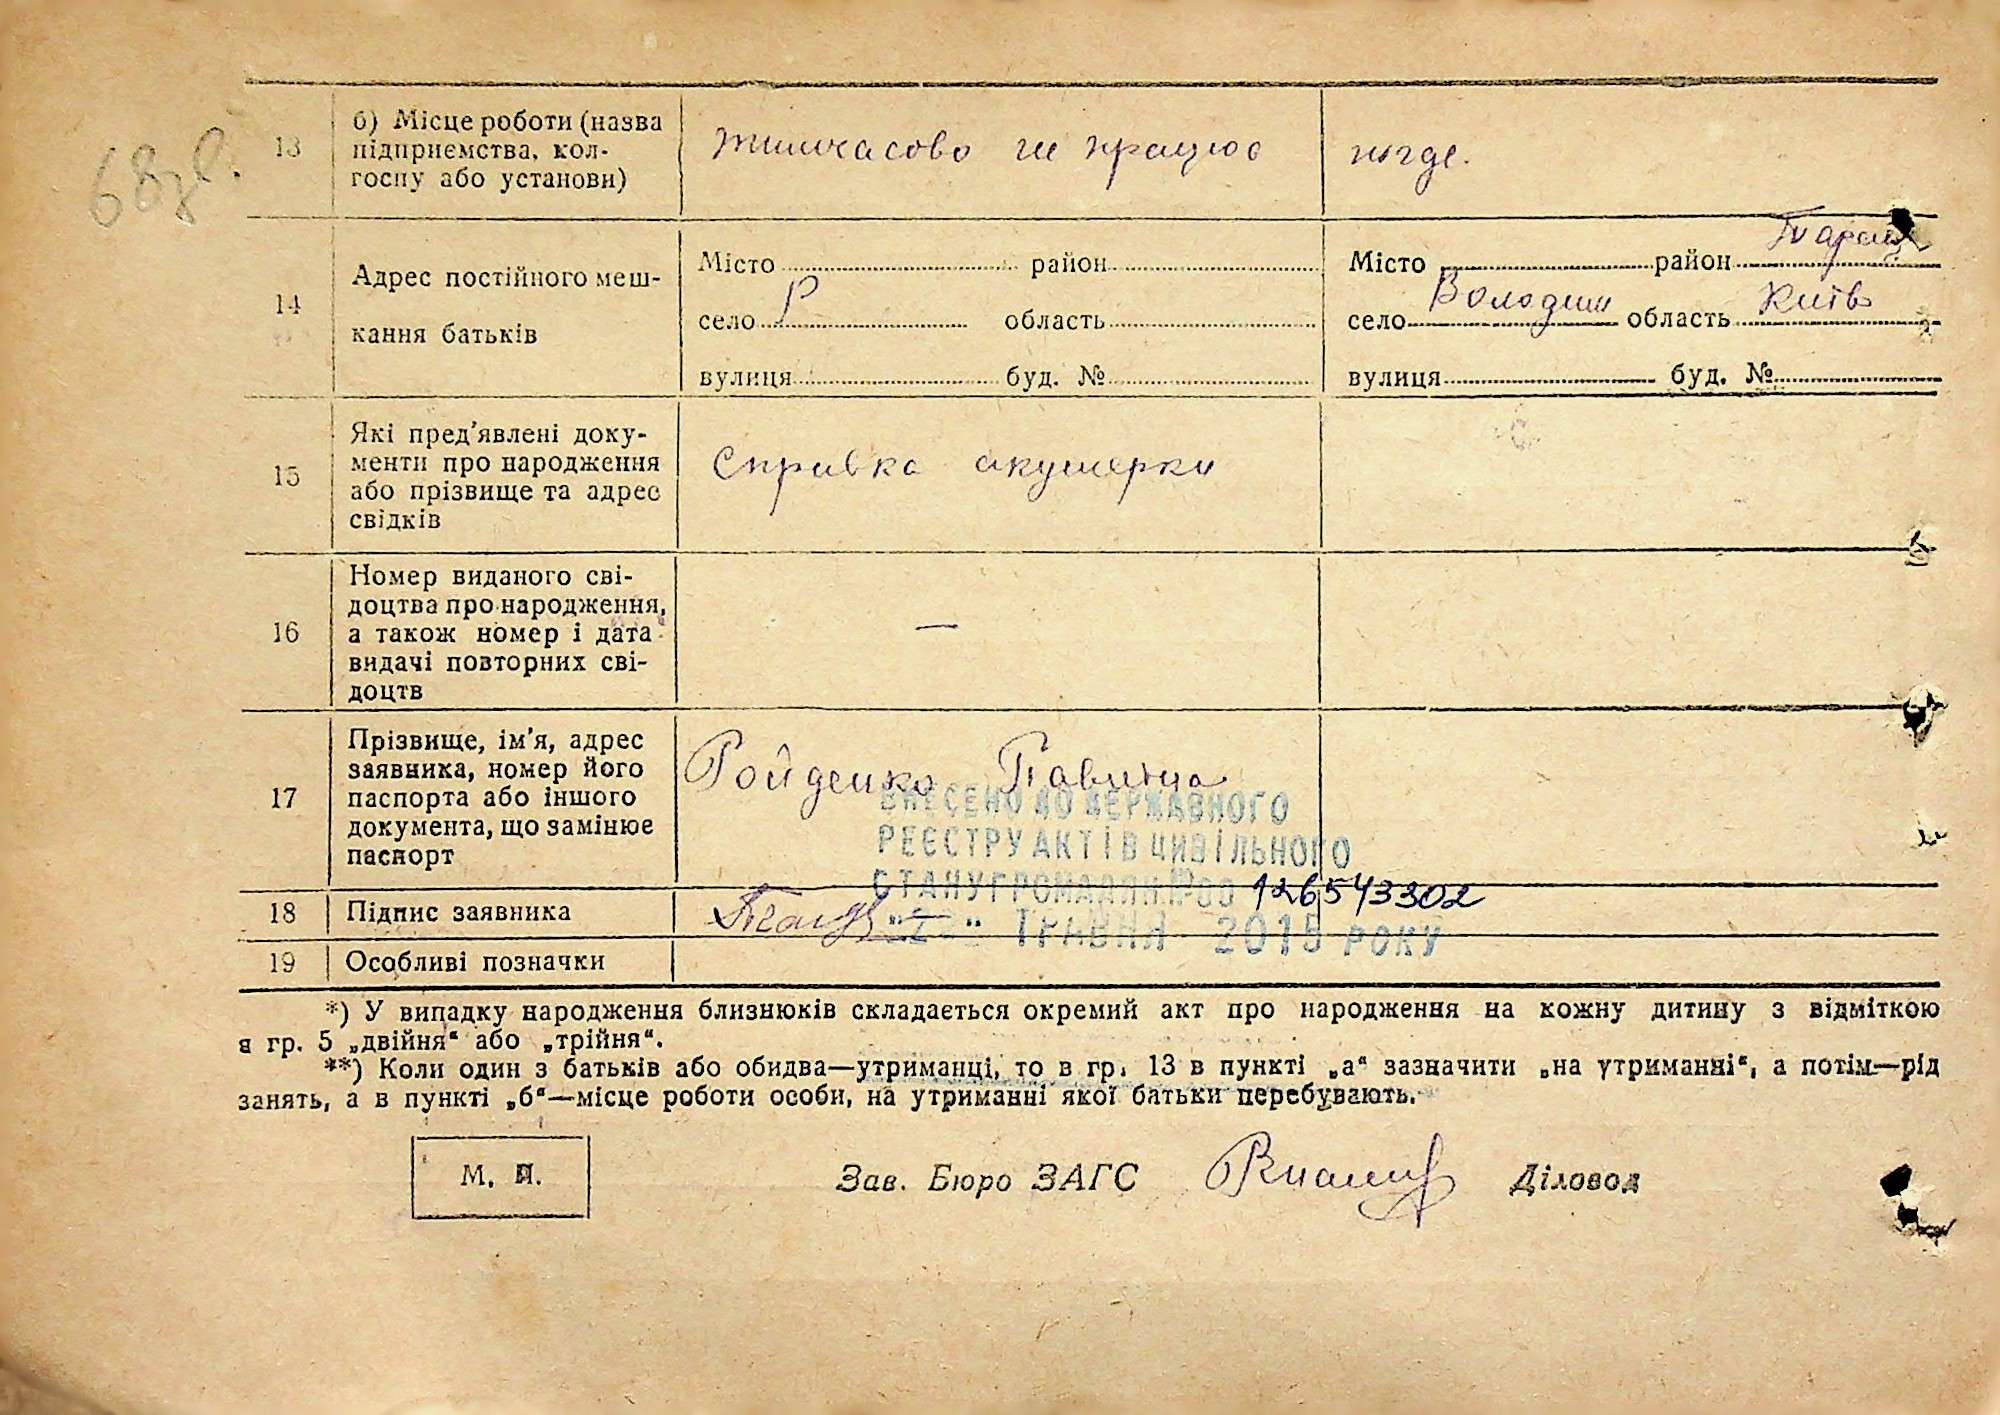 68зв.
13 б) Місце роботи (назва підприємства, колгоспу або установи)
тимчасово не працює
нігде.
14 Адрес постійного мешкання батьків
Місто район
село Р область
вулиця буд. №
Місто район Таращ
село Володим область Київ
вулиця буд. №
15 Які пред'явлені документи про народження або прізвище та адрес свідків
Справка акушерки
16 Номер виданого свідоцтва про народження, а також номер і дата видачі повторних свідоцтв
—
17 Прізвище, ім'я, адрес заявника, номер його паспорта або іншого документа, що замінює паспорт
Ройденко
ВНЕСЕНО ДО ДЕРЖАВНОГО
РЕЄСТРУ АКТІВ ЦИВІЛЬНОГО
СТАНУ ГРОМАДЯН №00 126543302
ТРАВНЯ 2015 РОКУ
18 Підпис заявника
19 Особливі позначки
*) У випадку народження близнюків складається окремий акт про народження на кожну дитину з відміткою
в гр. 5 „двійня“ або „трійня“.
**) Коли один з батьків або обидва—утриманці, то в гр. 13 в пункті „а“ зазначити „на утриманні“, а потім—рід
занять, а в пункті „б“—місце роботи особи, на утриманні якої батьки перебувають.
М. П.
Зав. Бюро ЗАГС
Діловод